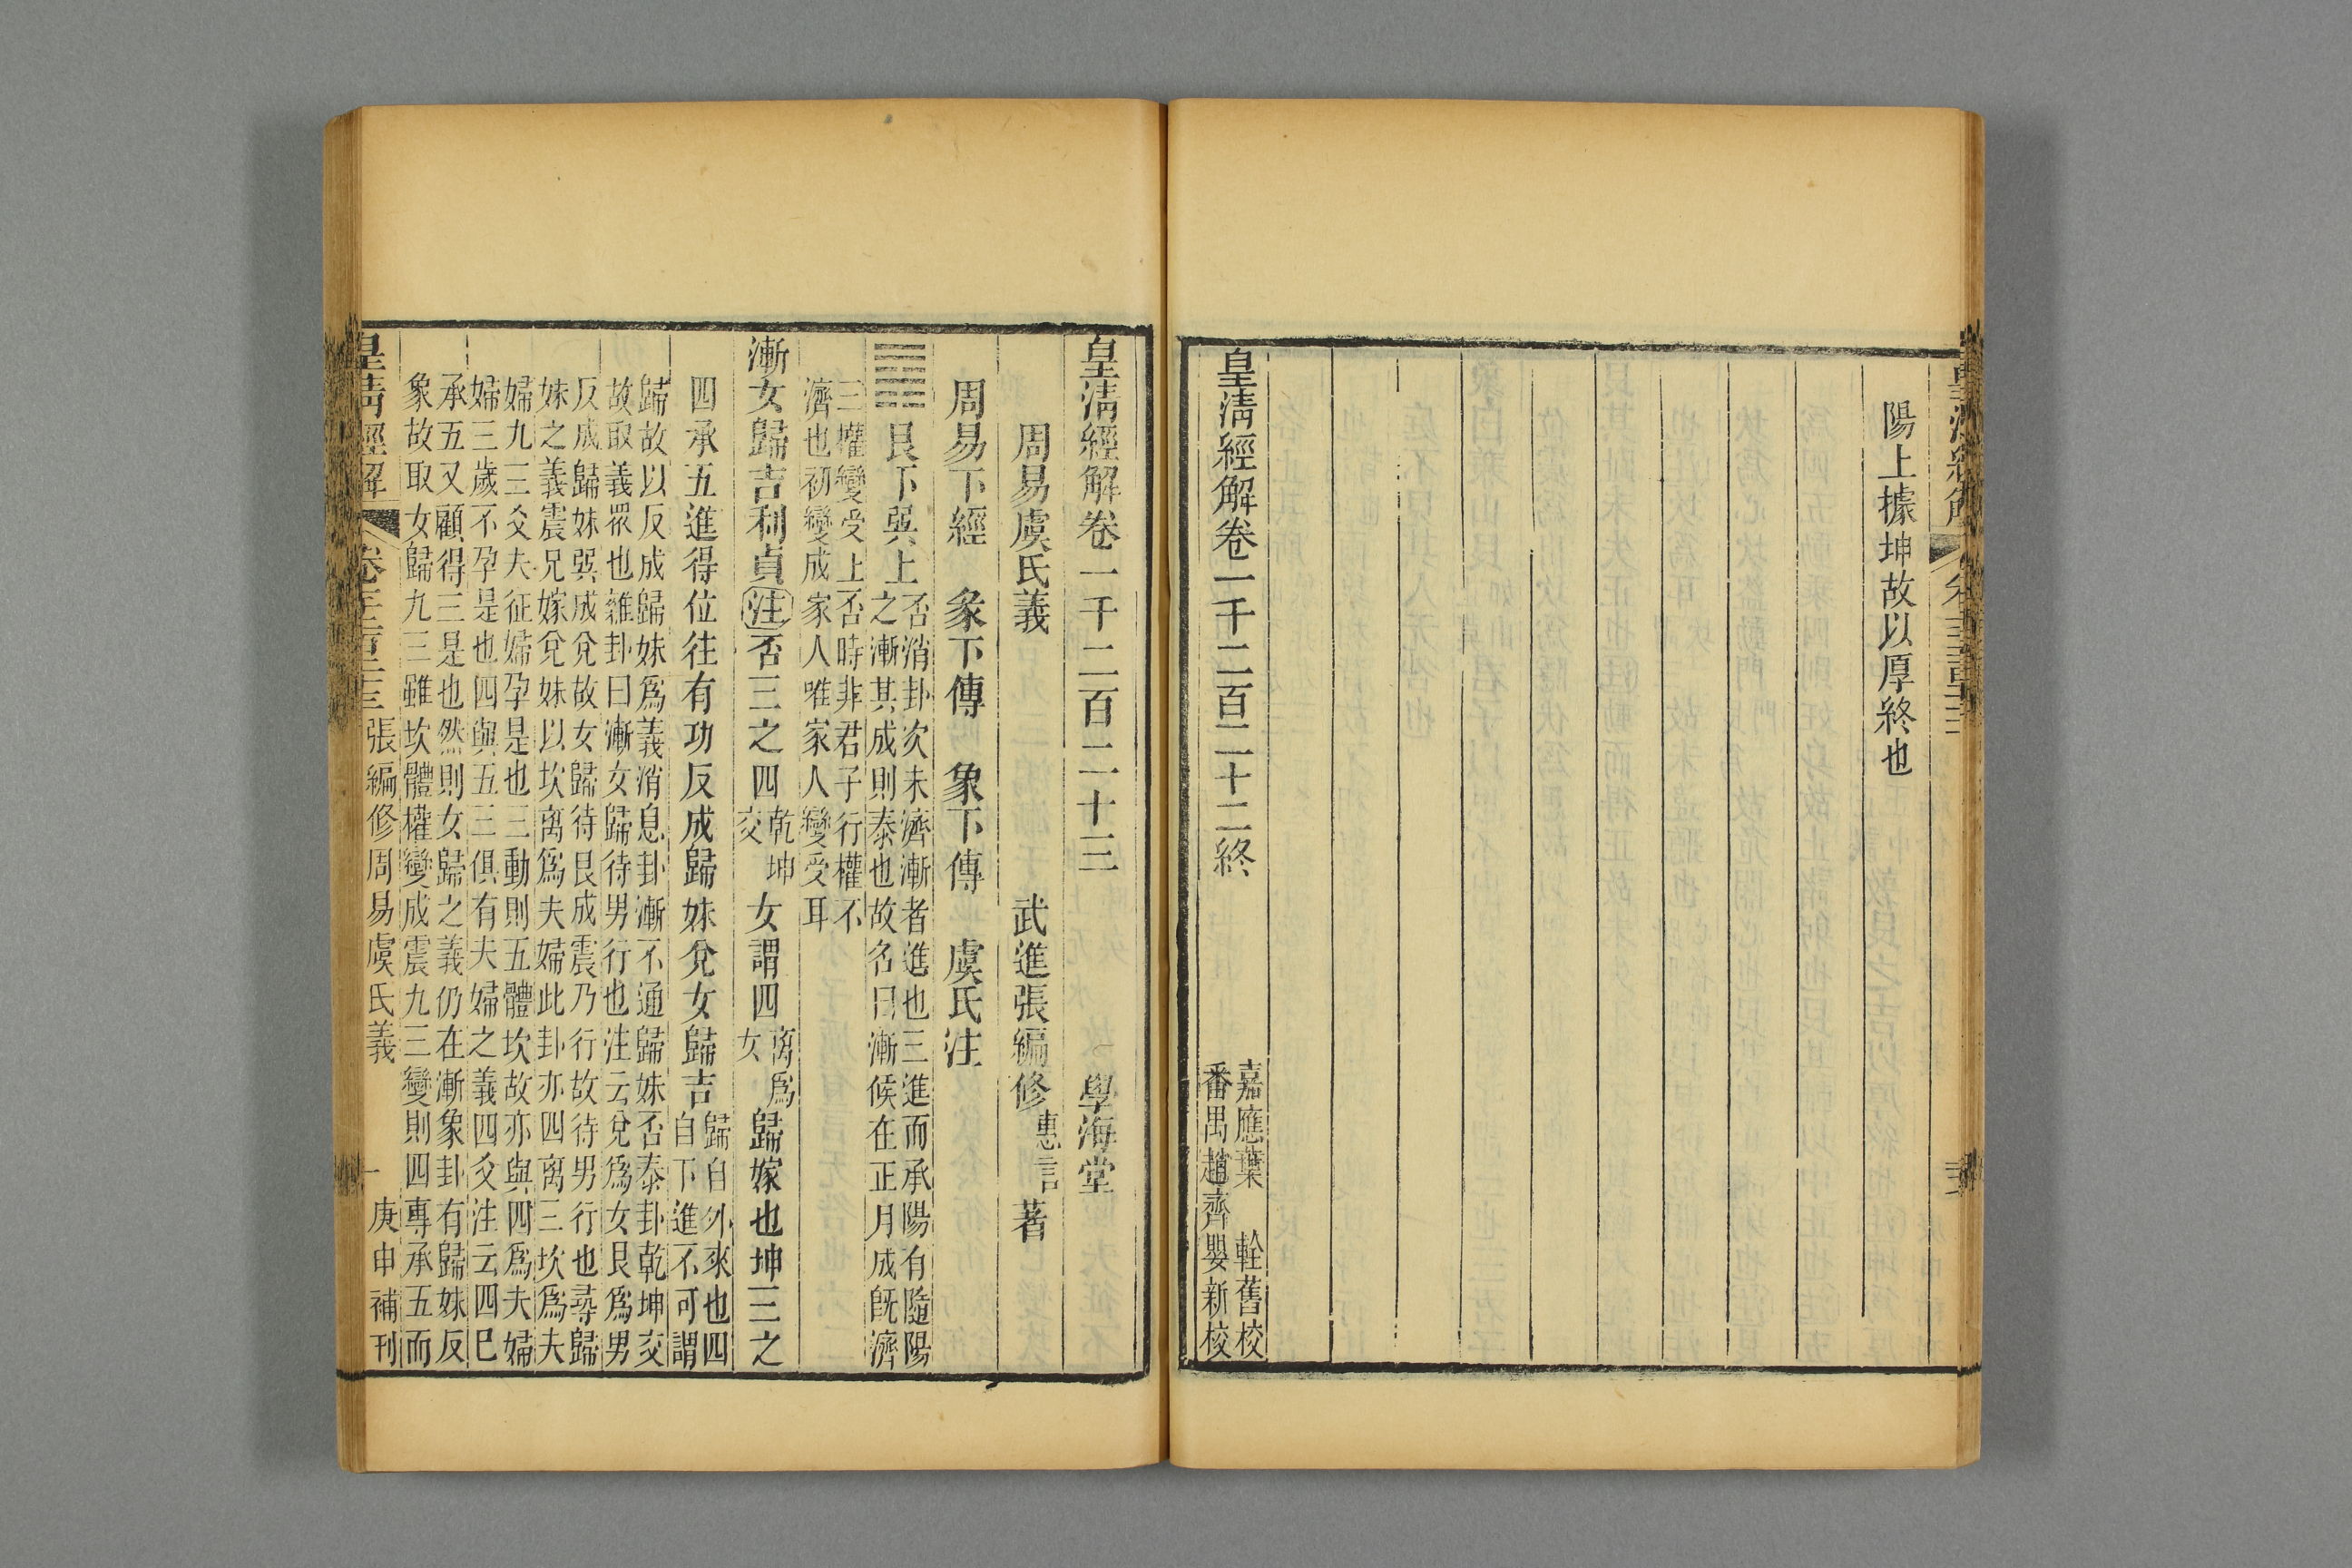 陽上據坤故以厚終也
皇清經解卷一千二百二十二終
嘉應葉 輇舊校
番禺趙齊嬰新校
皇清經解卷一千二百二十三 學海堂
周易虞氏義 武進張編修惠言著
周易下經 彖下傳 象下傳 虞氏注
䷴艮下巽上
否消卦次未濟漸者進也三進而承陽有隨陽
之漸其成則泰也故名曰漸候在正月成旣濟
三權變受上否時非君子行權不
濟也初變成家人唯家人變受耳
漸女歸吉利貞注否三之四乾坤交女謂四离爲女歸嫁也坤三之
四承五進得位往有功反成歸妹兌女歸吉歸自外來也四自下進不可謂
歸故以反成歸妹爲義消息卦漸不通歸妹否泰卦乾坤交
故取義眾也雜卦曰漸女歸待男行也注云兌爲女艮爲男
反成歸妹巽成兌故女歸待艮成震乃行故待男行也尋歸
妹之義震兄嫁兌妹以坎离爲夫婦此卦亦四离三坎爲夫
婦九三爻夫征婦孕是也三動則五體坎故亦與四爲夫婦
婦三歲不孕是也四與五三俱有夫婦之義四爻注云四巳
承五又顧得三是也然則女歸之義仍在漸象卦有歸妹反
象故取女歸九三雖坎體權變成震九三變則四專承五而
皇清經解 張編修周易虞氏義 一 庚申補刊